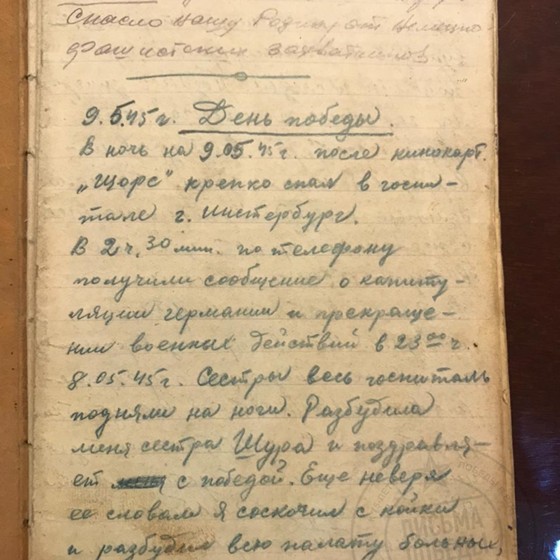 спасло нашу Родину от немецко-
фашистских захватчиков
9.5.45 г. День победы.
В ночь на 9.05.45 г. после кинокарт.
„Щорс" крепко спал в госпи-
тале г. Инстербург.
В 2 ч. 30 мин. по телефону
получили сообщение о капиту-
ляции германии и прекраще-
нии военных действий в 23 00 ч.
8.05.45 г. Сестры весь госпиталь
подняли на ноги. Разбудила
меня сестра Шура и поздравля-
ет с победой. Еще неверя
ее словам я соскочил с койки
и разбудил всю палату больных,
ПИСЬМА